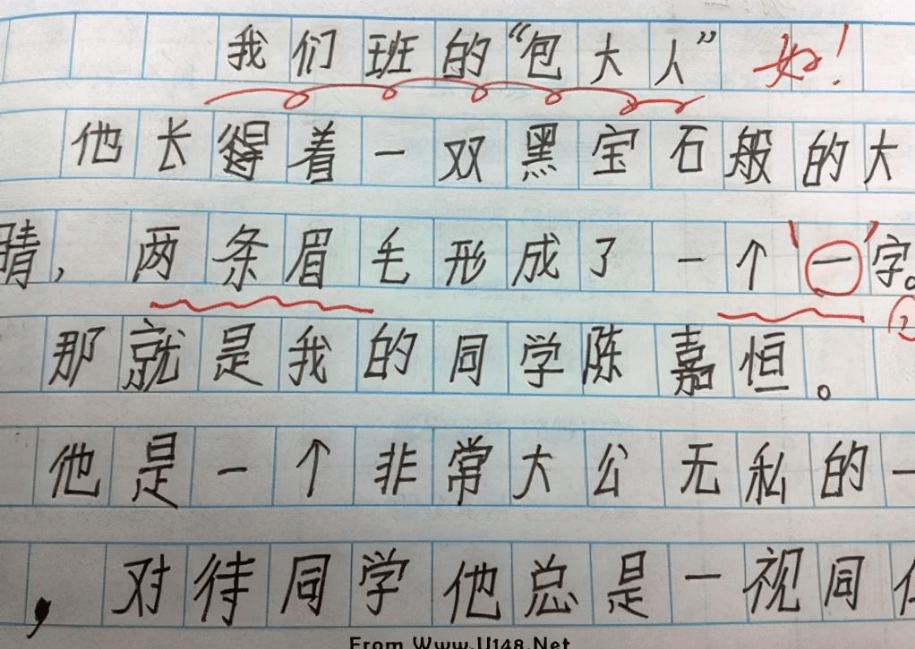 我们班的“包大人” 好！
他长得着一双黑宝石般的大
睛，两条眉毛形成了一个‘一’字。
那就是我的同学陈嘉恒。
他是一个非常大公无私的一
，对待同学他总是一视同
From Www.U148.Net